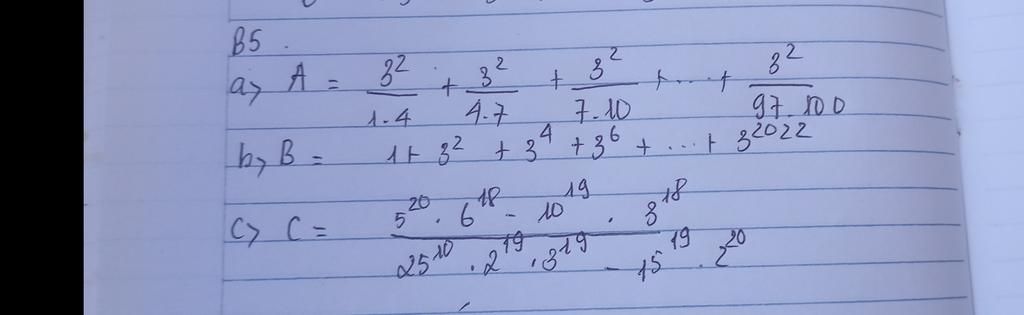 B5.
a> A = 3²/1.4 + 3²/4.7 + 3²/7.10 + ... + 3²/97.100
b> B = 1 + 3² + 3⁴ + 3⁶ + ... + 3²⁰²²
c> C = (5²⁰ . 6¹⁸ - 10¹⁹ . 3¹⁸)/(25¹⁰ . 2¹⁹ . 3¹⁹ - 15¹⁹ . 2²⁰)